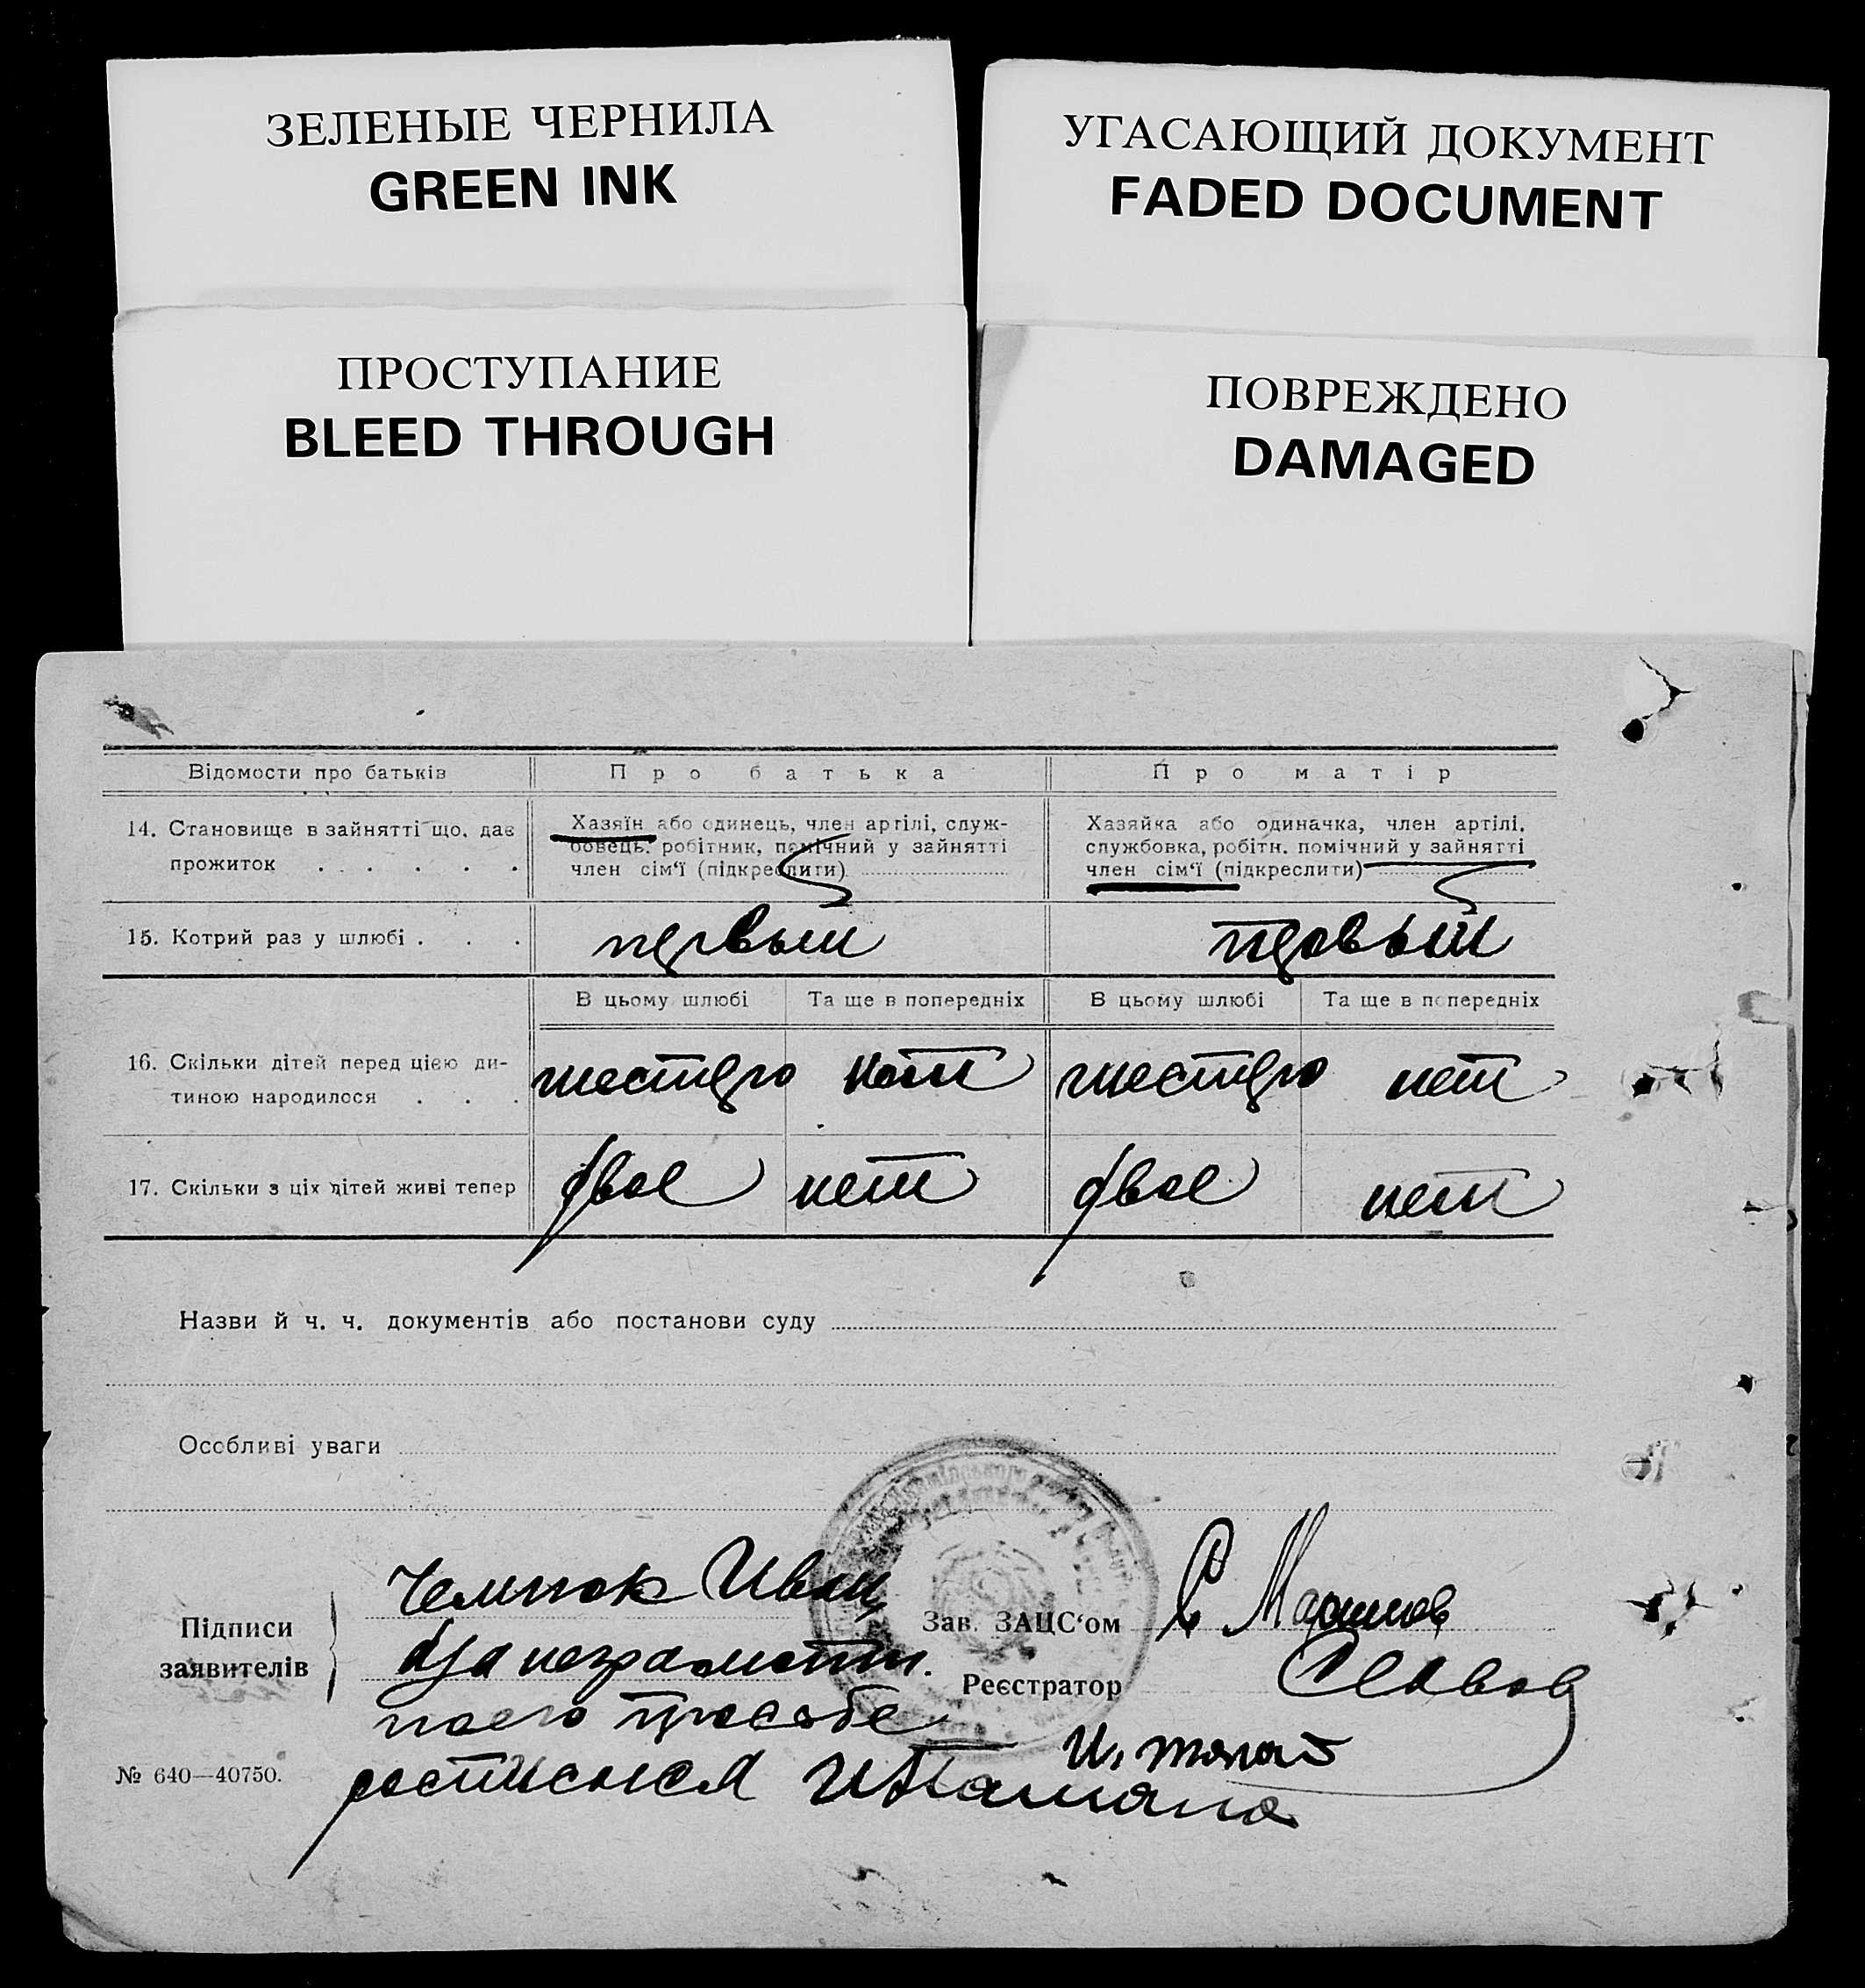 ЗЕЛЕНЫЕ ЧЕРНИЛА
GREEN INK
УГАСАЮЩИЙ ДОКУМЕНТ
FADED DOCUMENT
ПРОСТУПАНИЕ
BLEED THROUGH
ПОВРЕЖДЕНО
DAMAGED
Відомости про батьків Про батька Про матір
14. Становище в зайнятті що, дає
прожиток . . . . .
Хазяїн або одинець, член артілі, служ-
бовець, робітник, помічний у зайнятті
член сім'ї (підкреслити)
Хазяйка або одиначка, член артілі,
службовка, робітн. помічний у зайнятті
член сім'ї (підкреслити)
15. Котрий раз у шлюбі . . . первый первый
В цьому шлюбі Та ще в попередніх В цьому шлюбі Та ще в попередніх
16. Скільки дітей перед цією ди-
тиною народилося . . .
шестеро нет шестеро нет
17. Скільки з ціх дітей живі тепер двое нет двое нет
Назви й ч. ч. документів або постанови суду
Особливі уваги
Підписи
заявителів
Иван
за неграмотн.
просьбе
Зав. ЗАЦС'ом
Реєстратор
№ 640—40750.